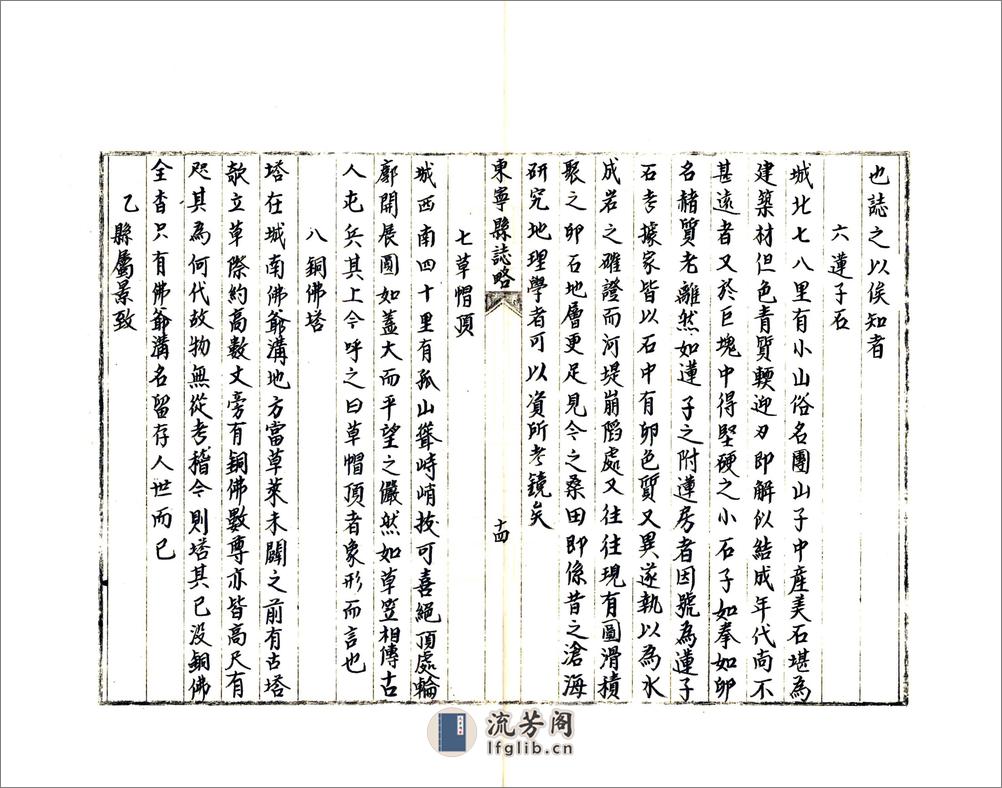 也誌之以俟知者
六蓮子石
城北七八里有小山俗名團山子中產美石堪為
建築材但色青質輭迎刃即解似結成年代尚不
甚遠者又於巨塊中得堅硬之小石子如拳如卵
名赭質老離然如蓮子之附蓮房者因號為蓮子
石考據家皆以石中有卵色質又異遂執以為水
成岩之確證而河堤崩陷處又往往現有圓滑積
聚之卵石地層更足見今之桑田即係昔之滄海
研究地理學者可以資所考鏡矣
東寧縣誌略
十四
七草帽頂
城西南四十里有孤山聳峙峭拔可喜絕頂處輪
廓開展圓如蓋大而平望之儼然如草笠相傳古
人屯兵其上今呼之曰草帽頂者象形而言也
八銅佛塔
塔在城南佛爺溝地方當草萊未闢之前有古塔
欹立草際約高數丈旁有銅佛數尊亦皆高尺有
咫其為何代故物無從考稽今則塔其已沒銅佛
全杳只有佛爺溝名留存人世而已
乙縣屬景致
流芳阁
lfglib.cn